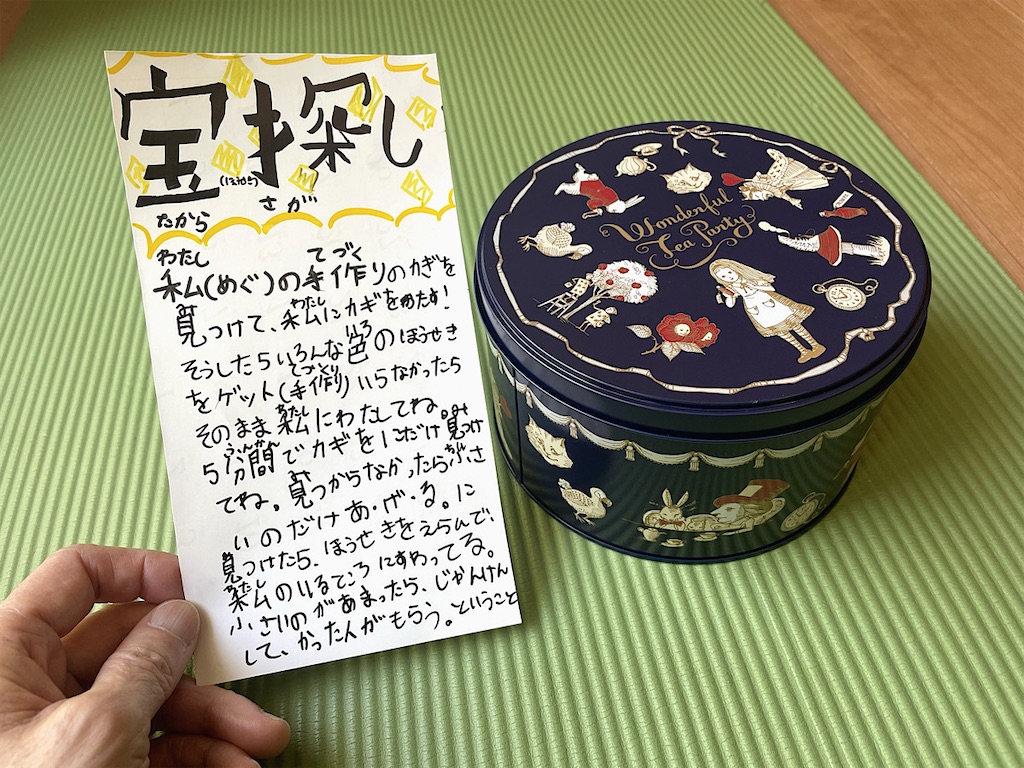 宝探し
(ほうせき)
たからさが
わたしてづく
私(めぐ)の手作りのかぎを
わたし
見つけて、私にカギをわたす!
いろ
そうしたらいろんな色のほうせき
てづくり
をゲット(手作り)いらなかったら
わたし
そのまま私にわたしてね。
ふんかんみ
5分間でカギをにだけ見つけ
み
てね。見つからなかったら小さ
いのだけあ・げ・る。に
見つけたら、ほうせきをえらんで、
わたし
私のいるところにすわってる。
小さいのがあまったら、じゃんけん
して、かった人がもらう。ということ
Wonderful
Tea Party